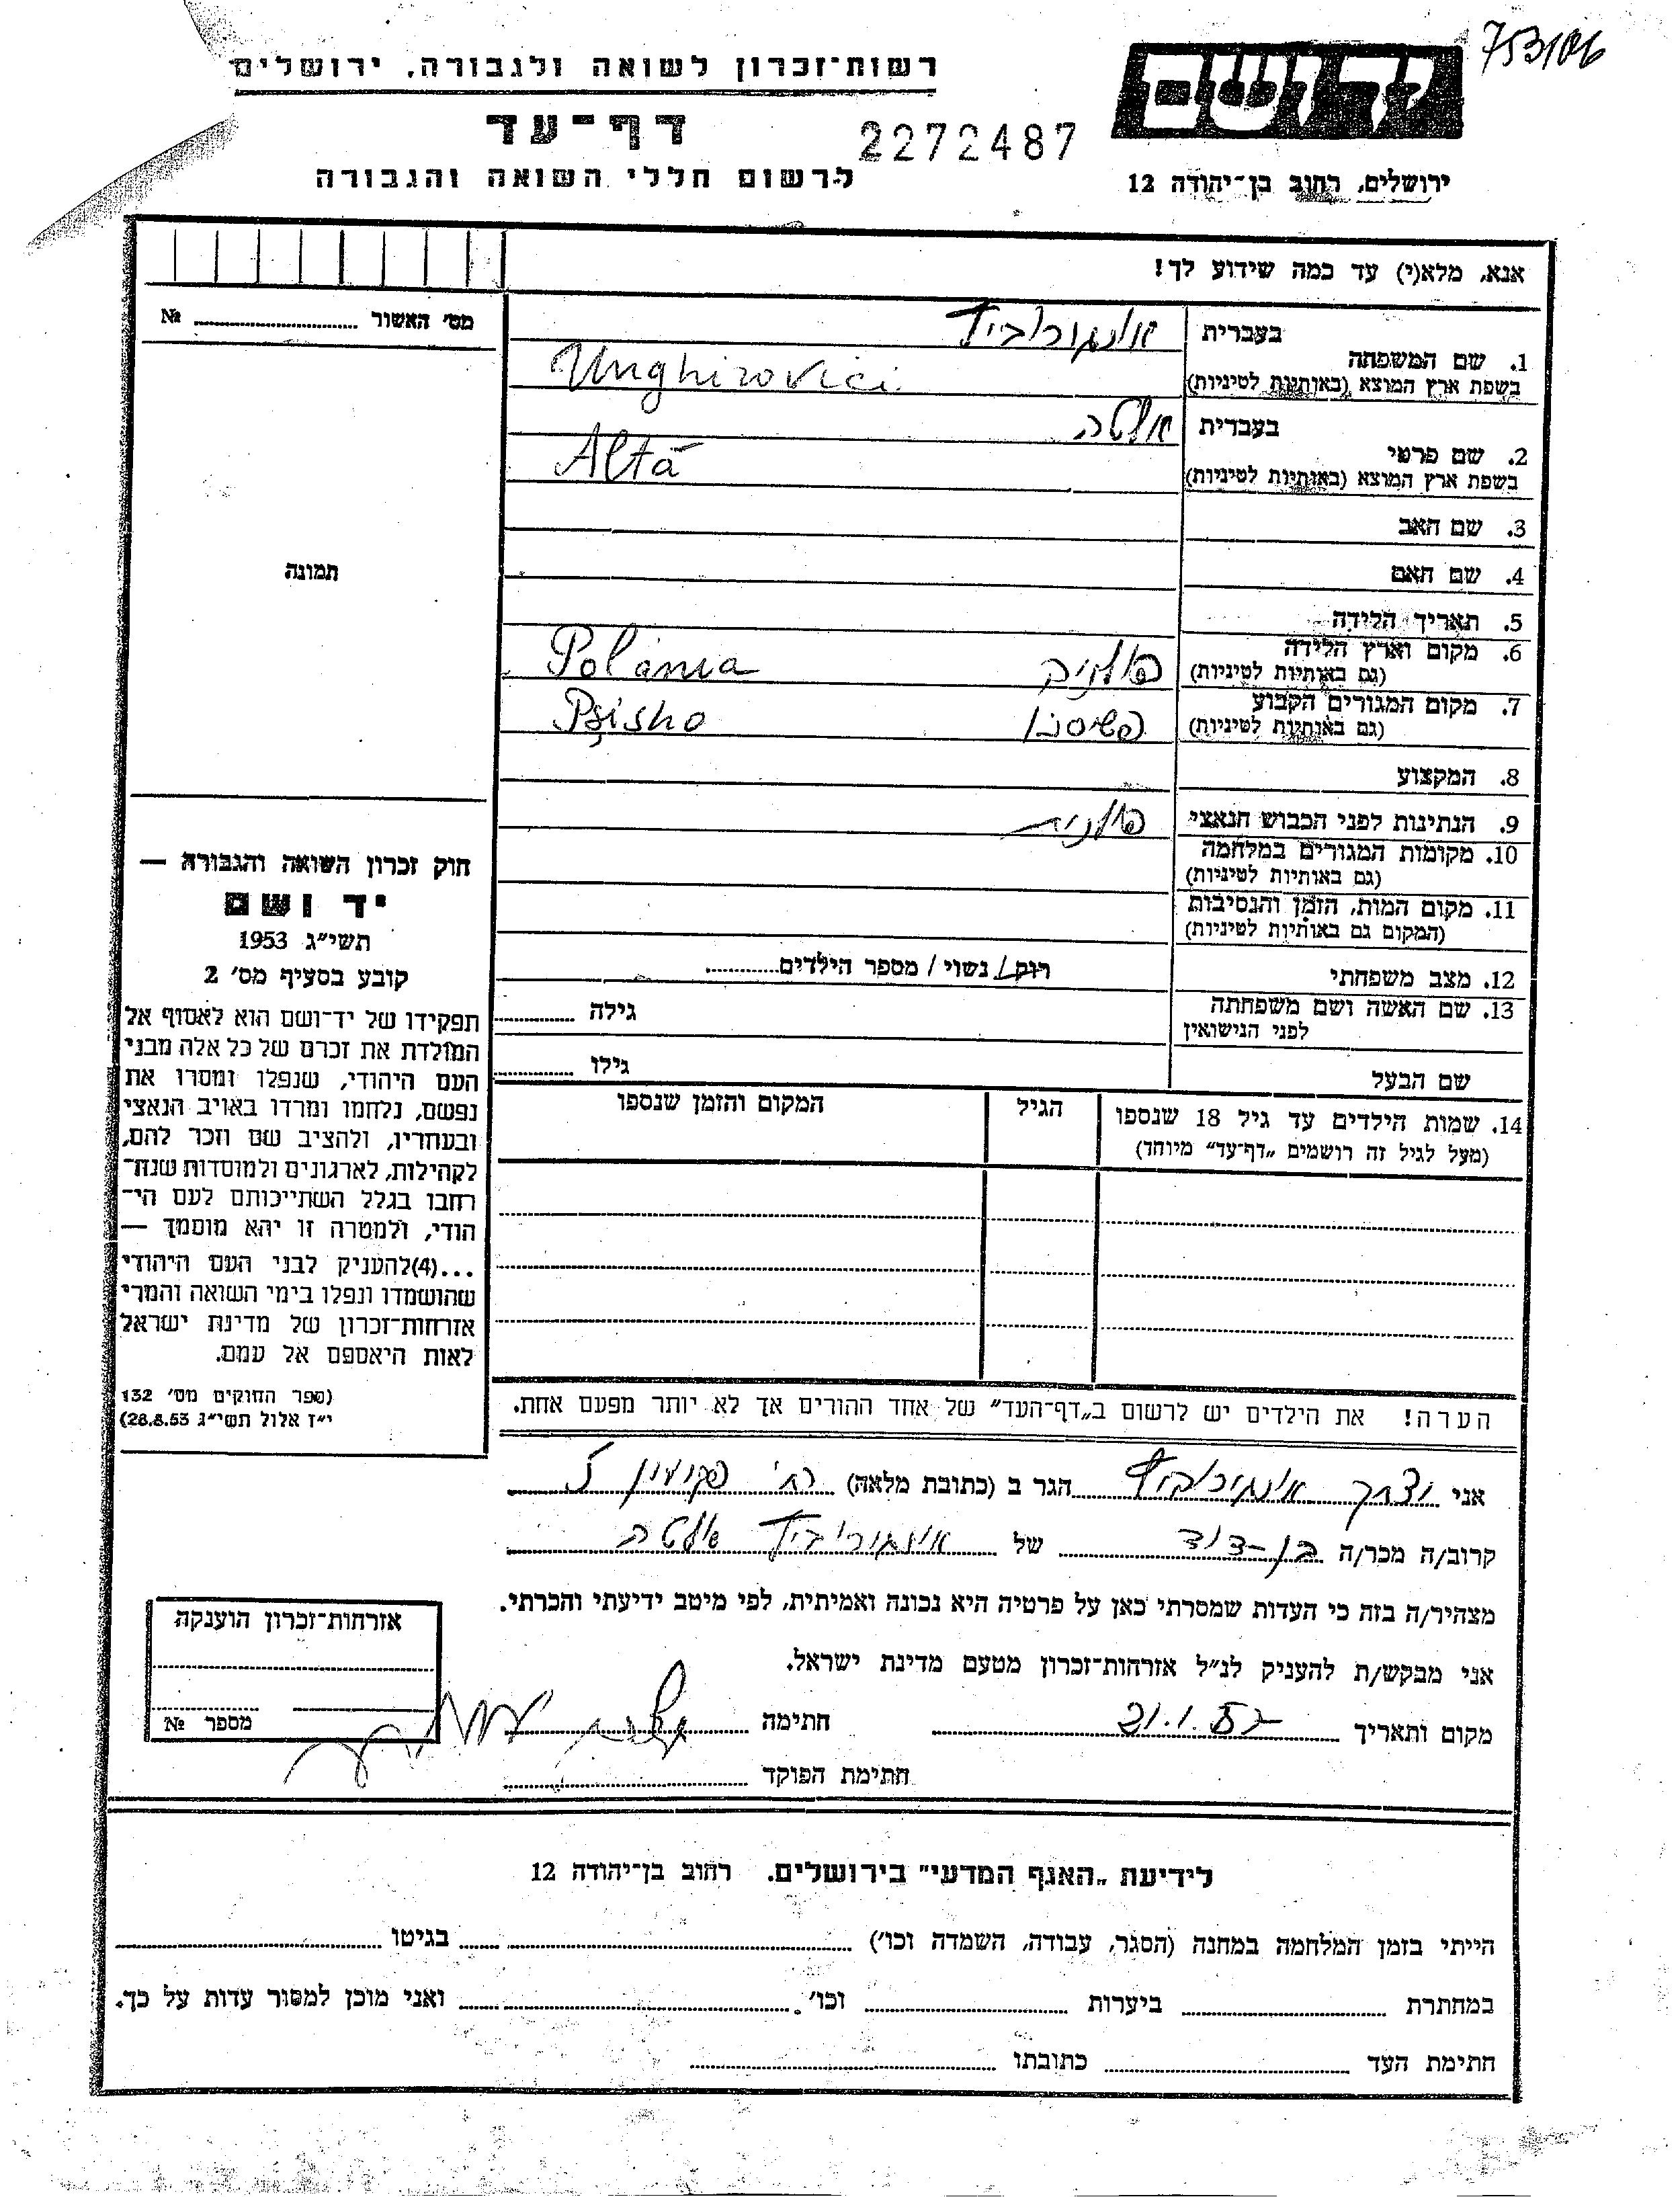 753/06
רשות־זכרון לשואה ולגבורה, ירושלים
דף־עד
2272487
לרשום חללי השואה והגבורה
ידושם
ירושלים, רחוב בן־יהודה 12
אנא, מלא(י) עד כמה שידוע לך!
מס' האשור № 
תמונה
1. שם המשפחה
בעברית אונגורוביץ
בשפת ארץ המוצא (באותיות לטיניות) Unghirovici
2. שם פרטי
בעברית אלטה
בשפת ארץ המוצא (באותיות לטיניות) Altă
3. שם האב
4. שם האם
5. תאריך הלידה
6. מקום וארץ הלידה
(גם באותיות לטיניות) פולניה Polánia
7. מקום המגורים הקבוע
(גם באותיות לטיניות) Pșisho
8. המקצוע
9. הנתינות לפני הכבוש הנאצי פולנית
10. מקומות המגורים במלחמה
(גם באותיות לטיניות)
11. מקום המות, הזמן והנסיבות
(המקום גם באותיות לטיניות)
12. מצב משפחתי רוק/ נשוי / מספר הילדים
13. שם האשה ושם משפחתה גילה
לפני הנישואין
שם הבעל גילו
14. שמות הילדים עד גיל 18 שנספו הגיל המקום והזמן שנספו
(מעל לגיל זה רושמים „דף־עד" מיוחד)
הערה! את הילדים יש לרשום ב„דף־העד" של אחד ההורים אך לא יותר מפעם אחת.
חוק זכרון השואה והגבורה —
יד ושם
תשי"ג 1953
קובע בסעיף מס' 2
תפקידו של יד־ושם הוא לאסוף אל
המולדת את זכרם של כל אלה מבני
העם היהודי, שנפלו ומסרו את
נפשם, נלחמו ומרדו באויב הנאצי
ובעוזריו, ולהציב שם וזכר להם,
לקהילות, לארגונים ולמוסדות שנח־
רחבו בגלל השתייכותם לעם הי־
הודי, ולמטרה זו יהא מוסמך —
...(4) להעניק לבני העם היהודי
שהושמדו ונפלו בימי השואה והמרי
אזרחות־זכרון של מדינת ישראל
לאות היאספם אל עמם.
(ספר החוקים מס' 132
י"ז אלול תשי"ג 28.8.53)
אני יצחק אונגורוביץ הגר ב (כתובת מלאה) רח'
קרוב/ה מכר/ה בן-דוד של אונגורוביץ אלטה
מצהיר/ה בזה כי העדות שמסרתי כאן על פרטיה היא נכונה ואמיתית, לפי מיטב ידיעתי והכרתי.
אני מבקש/ת להעניק לנ"ל אזרחות־זכרון מטעם מדינת ישראל.
מקום ותאריך 21.1.57 חתימה
חתימת הפוקד
אזרחות־זכרון הוענקה
מספר №
לידיעת „האגף המדעי" בירושלים. רחוב בן־יהודה 12
הייתי בזמן המלחמה במחנה (הסגר, עבודה, השמדה וכו') בגיטו
במחתרת ביערות וכו'. ואני מוכן למסור עדות על כך.
חתימת העד כתובתו